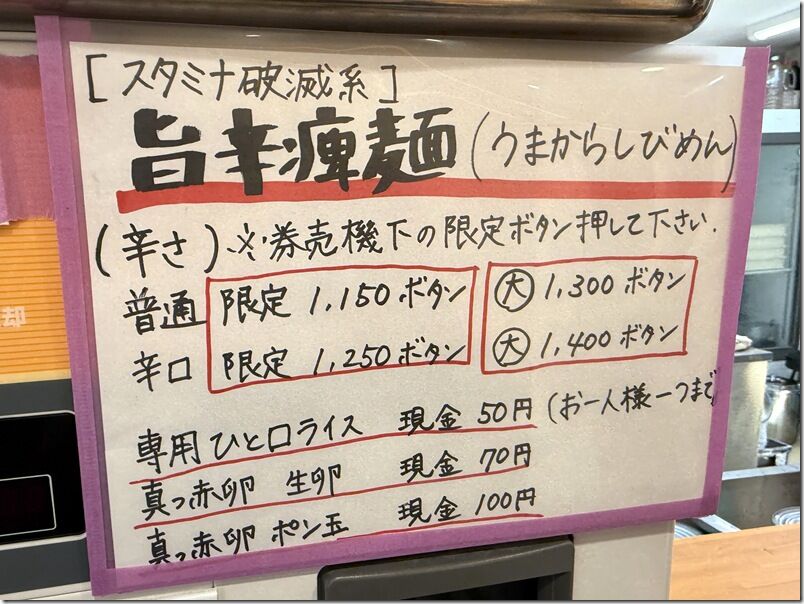 [スタミナ破滅系]
旨辛痺麺(うまからしびめん)
(辛さ)※券売機下の限定ボタン押して下さい.
普通 限定 1,150 ボタン 大 1,300 ボタン
辛口 限定 1,250 ボタン 大 1,400 ボタン
専用ひと口ライス 現金 50円 (お一人様一つまで
真っ赤卵 生卵 現金 70円
真っ赤卵 ポン玉 現金 100円
却